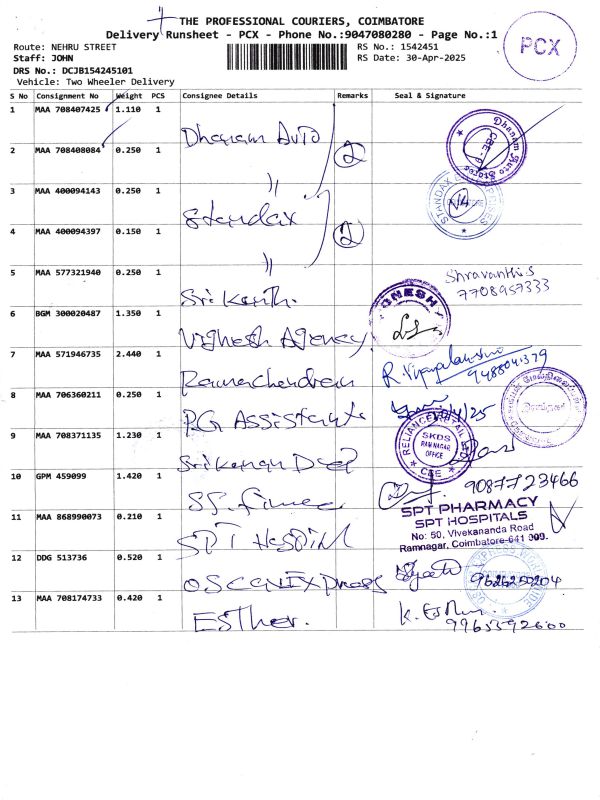 THE PROFESSIONAL COURIERS, COIMBATORE
Delivery Runsheet - PCX - Phone No.:9047080280 - Page No.:1
PCX
Route: NEHRU STREET
RS No.: 1542451
Staff: JOHN
RS Date: 30-Apr-2025
DRS No.: DCJB154245101
Vehicle: Two Wheeler Delivery
S No Consignment No Weight PCS Consignee Details Remarks Seal & Signature
1 MAA 708407425 1.110 1 Dhanam Auto
Dhanam Auto Stores
CBE-9
2 MAA 708408084 0.250 1 " 2
3 MAA 400094143 0.250 1 Standax
STANDAX
4 MAA 400094397 0.150 1 " 2
5 MAA 577321940 0.250 1 Srikanth.
Shravanthi.S
7708957333
6 BGM 300020487 1.350 1 Vighesh Agency
7 MAA 571946735 2.440 1 Ramachandran
R. Vijayalakshmi
8 MAA 706360211 0.250 1 P.G Assistants
9 MAA 708371135 1.230 1
RELIANCE RETAIL LTD
SKDS
RAM NAGAR
OFFICE
CBE
10 GPM 459099 1.420 1
9087723466
11 MAA 868990073 0.210 1 SPT HOSPITAL
SPT PHARMACY
SPT HOSPITALS
No: 50, Vivekananda Road
Ramnagar, Coimbatore-641 009.
12 DDG 513736 0.520 1
9626250204
13 MAA 708174733 0.420 1 ESTHER.
K. Esther
9965592600